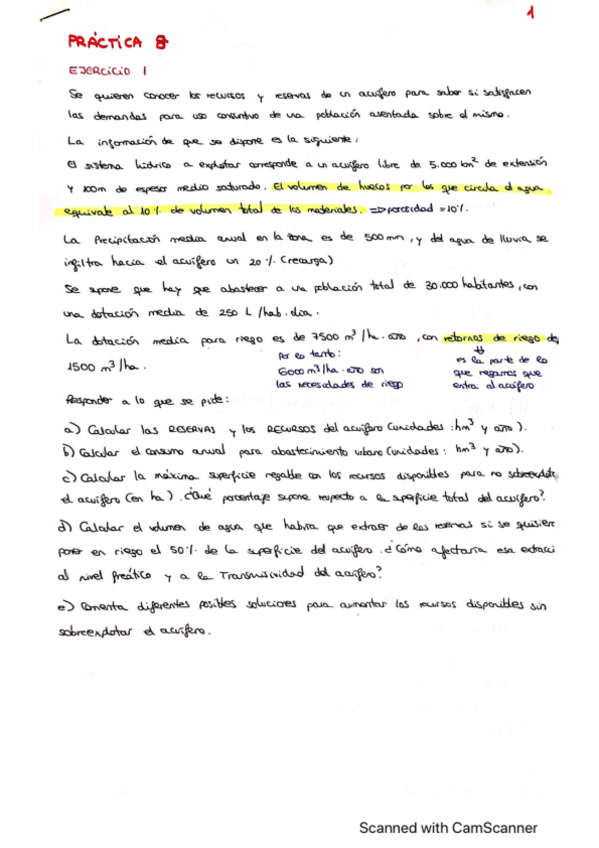 1
PRÁCTICA 8
EJERCICIO 1
Se quieren conocer los recursos y reservas de un acuífero para saber si satisfacen
las demandas para uso consuntivo de una población asentada sobre el mismo.
La información de que se dispone es la siguiente:
El sistema hídrico a explotar corresponde a un acuífero libre de 5.000 km² de extensión
y 100m de espesor medio saturado. El volumen de huecos por los que circula el agua
equivale al 10% de volumen total de los materiales. => porosidad = 10%.
La Precipitación media anual en la zona es de 500mm, y del agua de lluvia se
infiltra hacia el acuífero un 20% (recarga)
Se supone que hay que abastecer a una población total de 30.000 habitantes, con
una dotación media de 250 L/hab.día.
La dotación media para riego es de 7500 m³/ha.año, con retornos de riego de
1500 m³/ha.
Por lo tanto:
6000 m³/ha.año son
las necesidades de riego
es la parte de lo
que regamos que
entra al acuífero
Responder a lo que se pide:
a) Calcular las RESERVAS y los RECURSOS del acuífero (unidades: hm³ y año).
b) Calcular el consumo anual para abastecimiento urbano (unidades: hm³ y año).
c) Calcular la máxima superficie regable con los recursos disponibles para no sobreexplotar
el acuífero (en ha). ¿Qué porcentaje supone respecto a la superficie total del acuífero?
d) Calcular el volumen de agua que habría que extraer de las reservas si se quisiera
poner en riego el 50% de la superficie del acuífero. ¿Cómo afectaría esa extracci
al nivel freático y a la Transmisividad del acuífero?
e) Comenta diferentes posibles soluciones para aumentar los recursos disponibles sin
sobreexplotar el acuífero.
Scanned with CamScanner